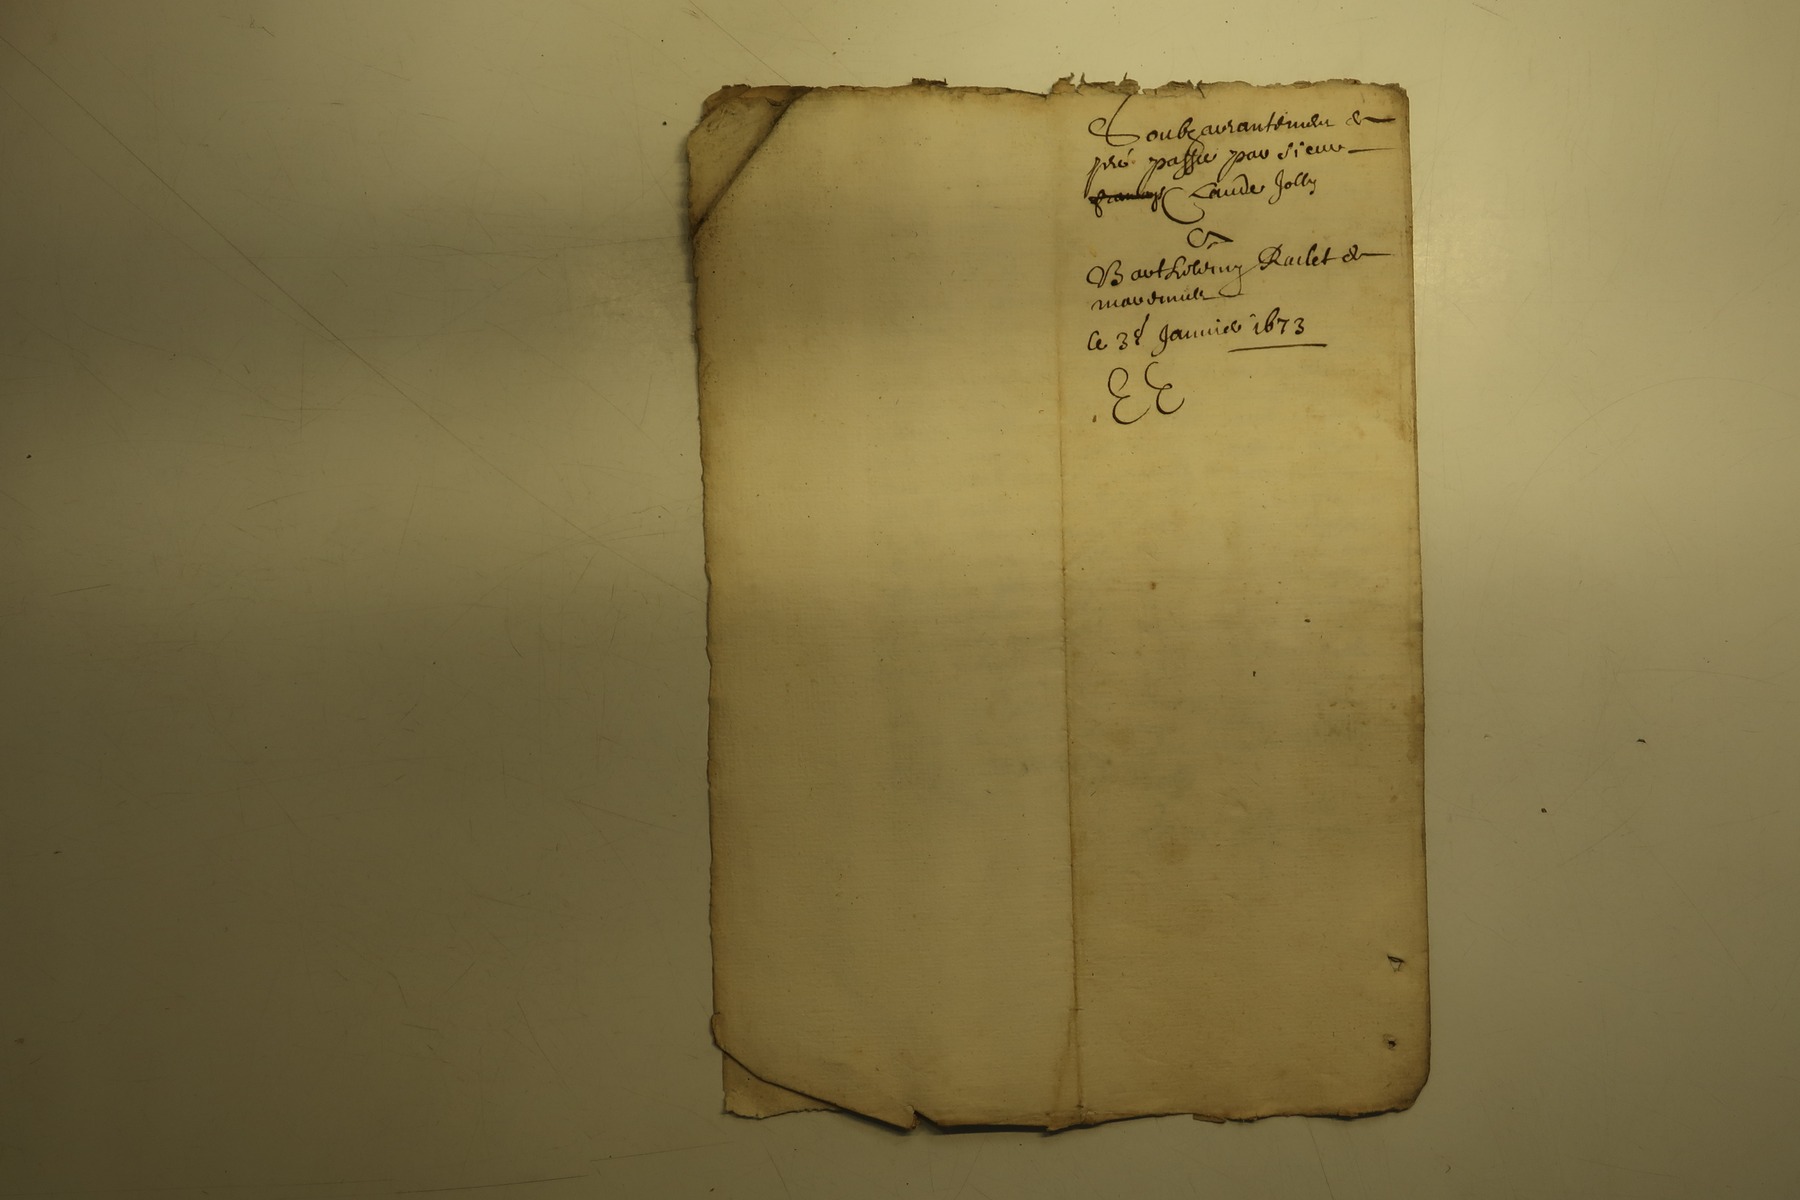 Soubzarrantemen de
pré passée par sieur
françois Claude Jolly
A
Barthelemy Raclet de
maremille
le 3e Janvier 1673
EE